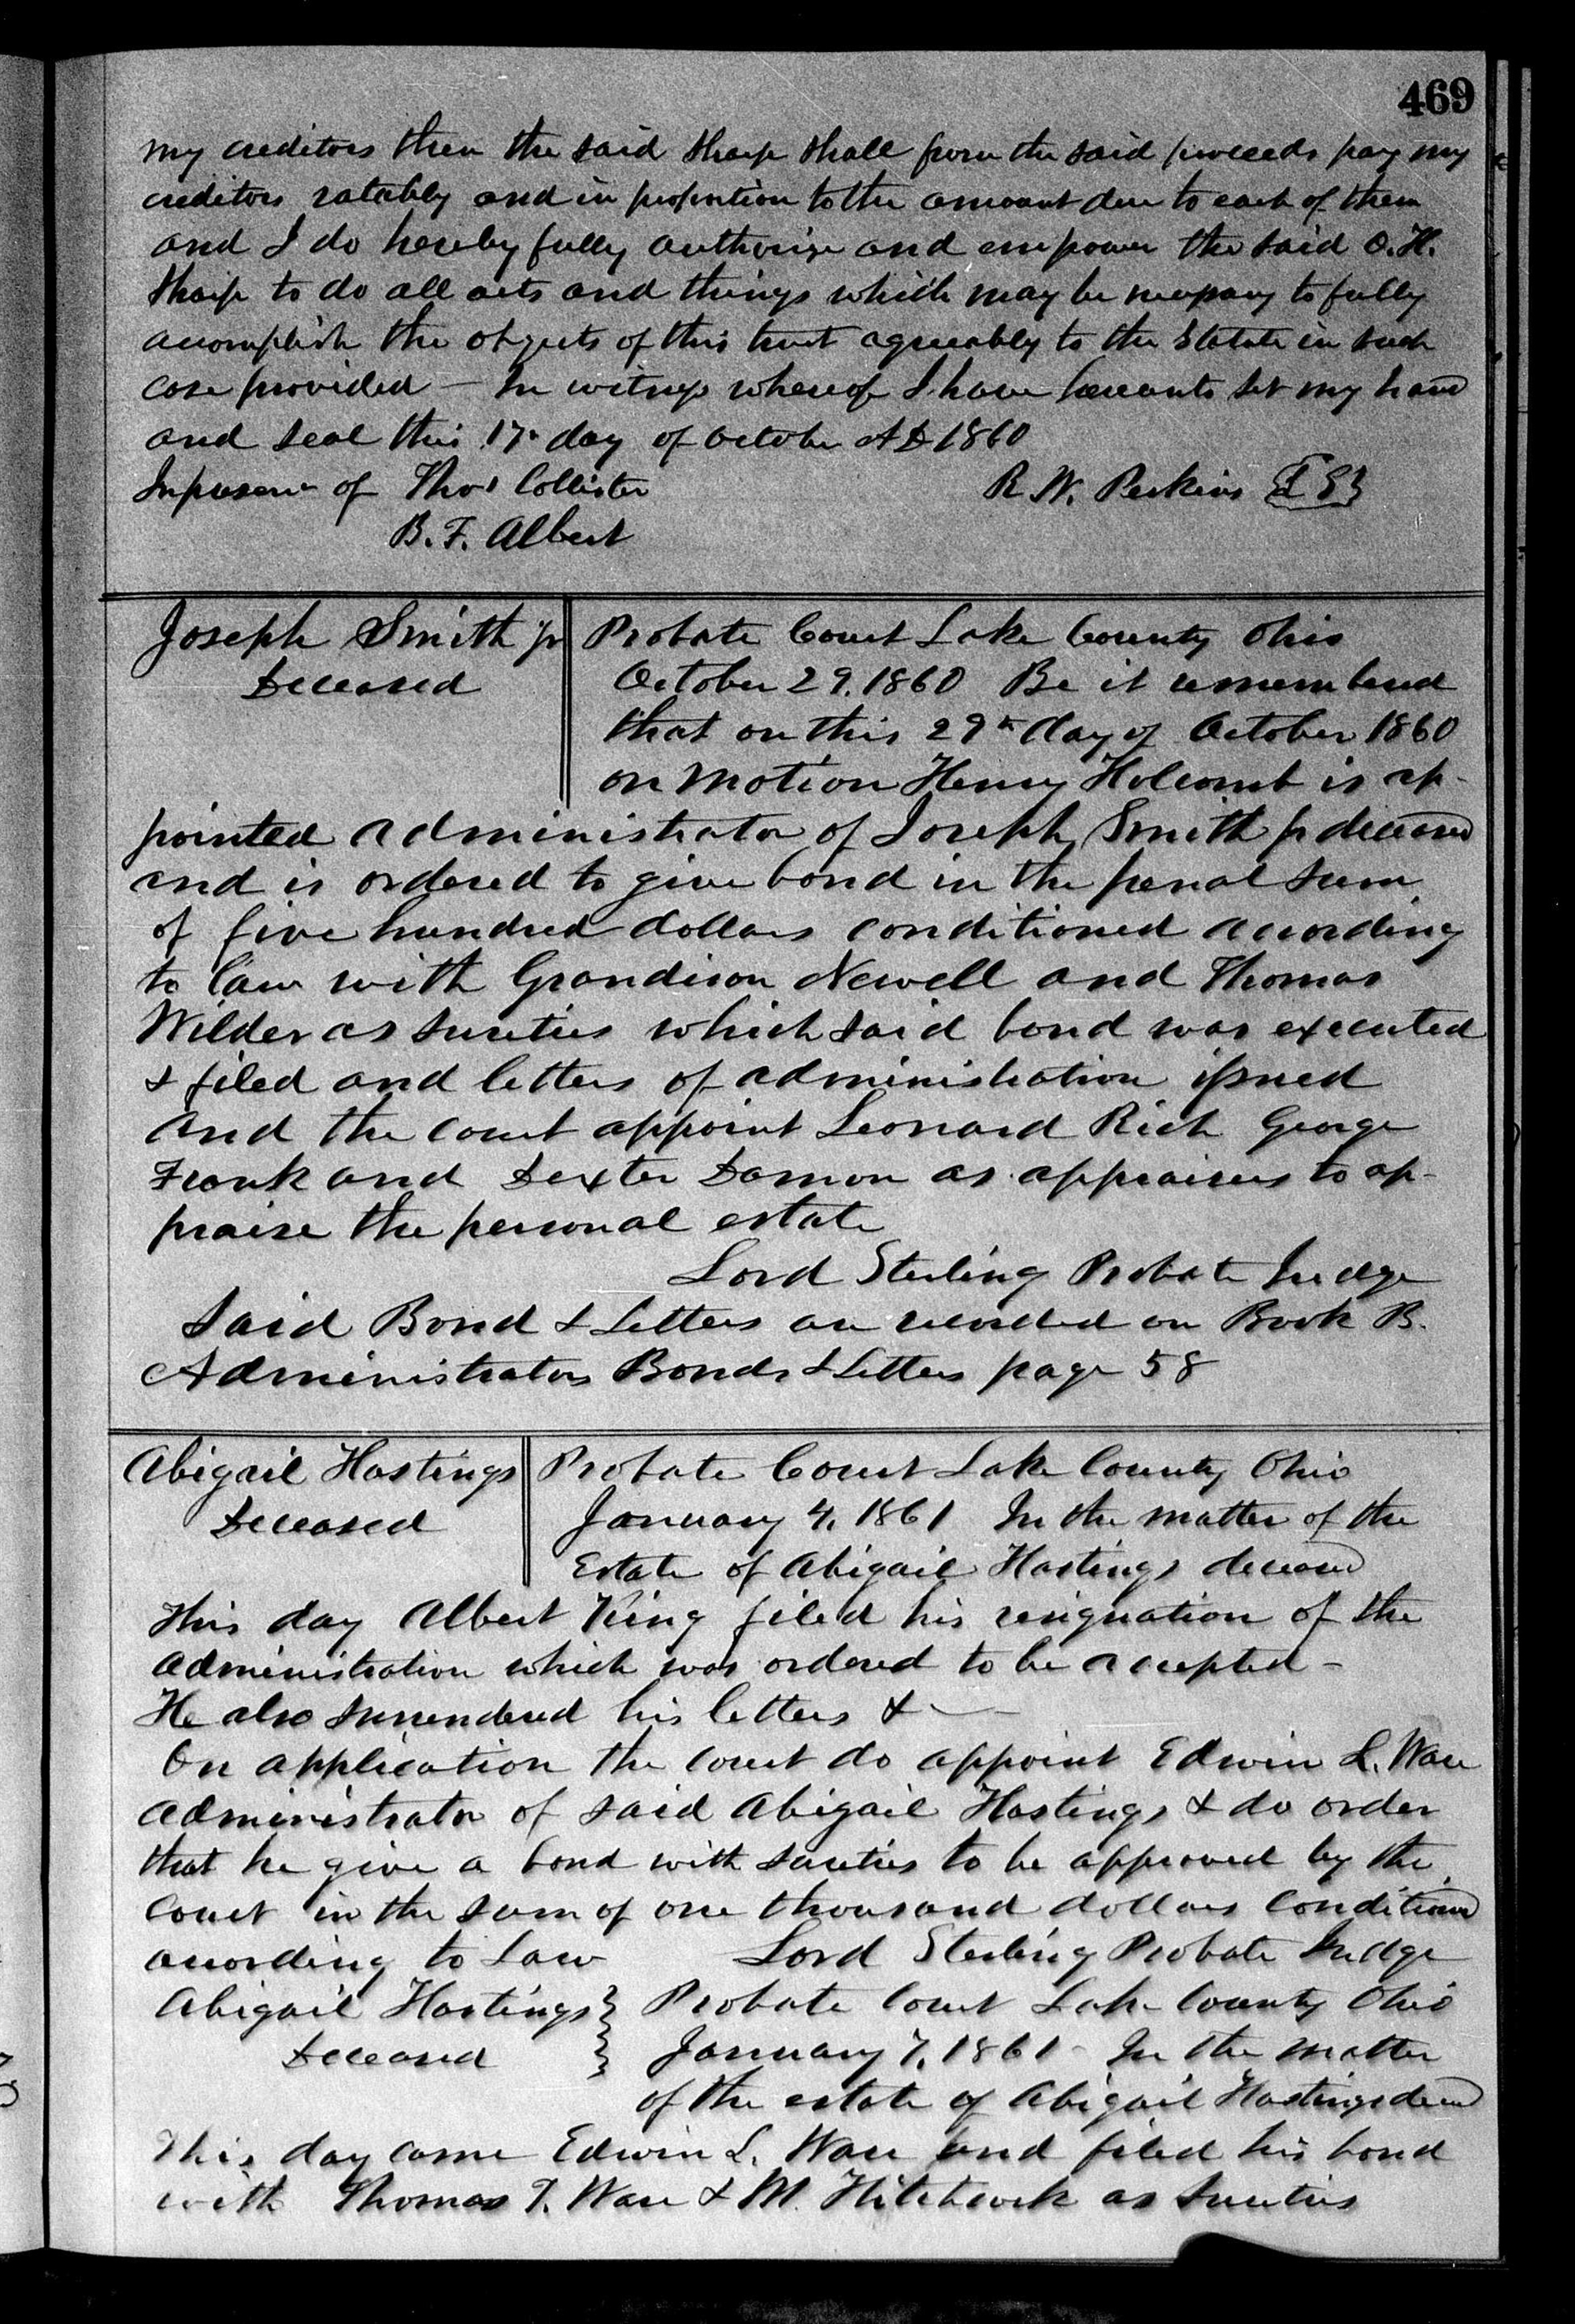 469
my creditors then the said Sharp shall from the said proceeds pay my
creditors ratably and in proportion to the amount due to each of them
and I do hereby fully authorize and empower the said O. H.
Sharp to do all acts and things which may be necessary to fully
accomplish the objects of this trust agreeably to the Statute in such
case provided — In witness whereof I have hereunto set my hand
and seal this 17th day of October A D 1860
In presence of Thos Collister R. W. Perkins {L S}
B. F. Albert
Joseph Smith jr Probate Court Lake County Ohio
Deceased October 29. 1860 Be it remembered
that on this 29th day of October 1860
on motion Henry Holcomb is ap-
pointed administrator of Joseph Smith jr deceased
and is ordered to give bond in the penal sum
of five hundred dollars conditioned according
to law with Grandison Newell and Thomas
Wilder as sureties which said bond was executed
& filed and letters of administration issued
and the court appoint Leonard Rich George
Frank and Dexter Damon as appraisers to ap-
praise the personal estate
Lord Sterling Probate Judge
Said Bond & Letters are recorded on Book B.
Administrators Bonds & Letters page 58
Abigail Hastings Probate Court Lake County Ohio
Deceased January 4, 1861 In the matter of the
Estate of Abigail Hastings deceased
This day Albert King filed his resignation of the
administration which was ordered to be accepted –
He also surrendered his letters & —
On application the court do appoint Edwin L. Ware
administrator of said Abigail Hastings & do order
that he give a bond with sureties to be approved by the
Court in the sum of one thousand dollars conditioned
according to Law Lord Sterling Probate Judge
Abigail Hastings } Probate Court Lake County Ohio
Deceased } January 7, 1861 – In the matter
of the estate of Abigail Hastings decd
This day came Edwin L. Ware and filed his bond
with Thomas T. Ware & M. Hitchcock as sureties